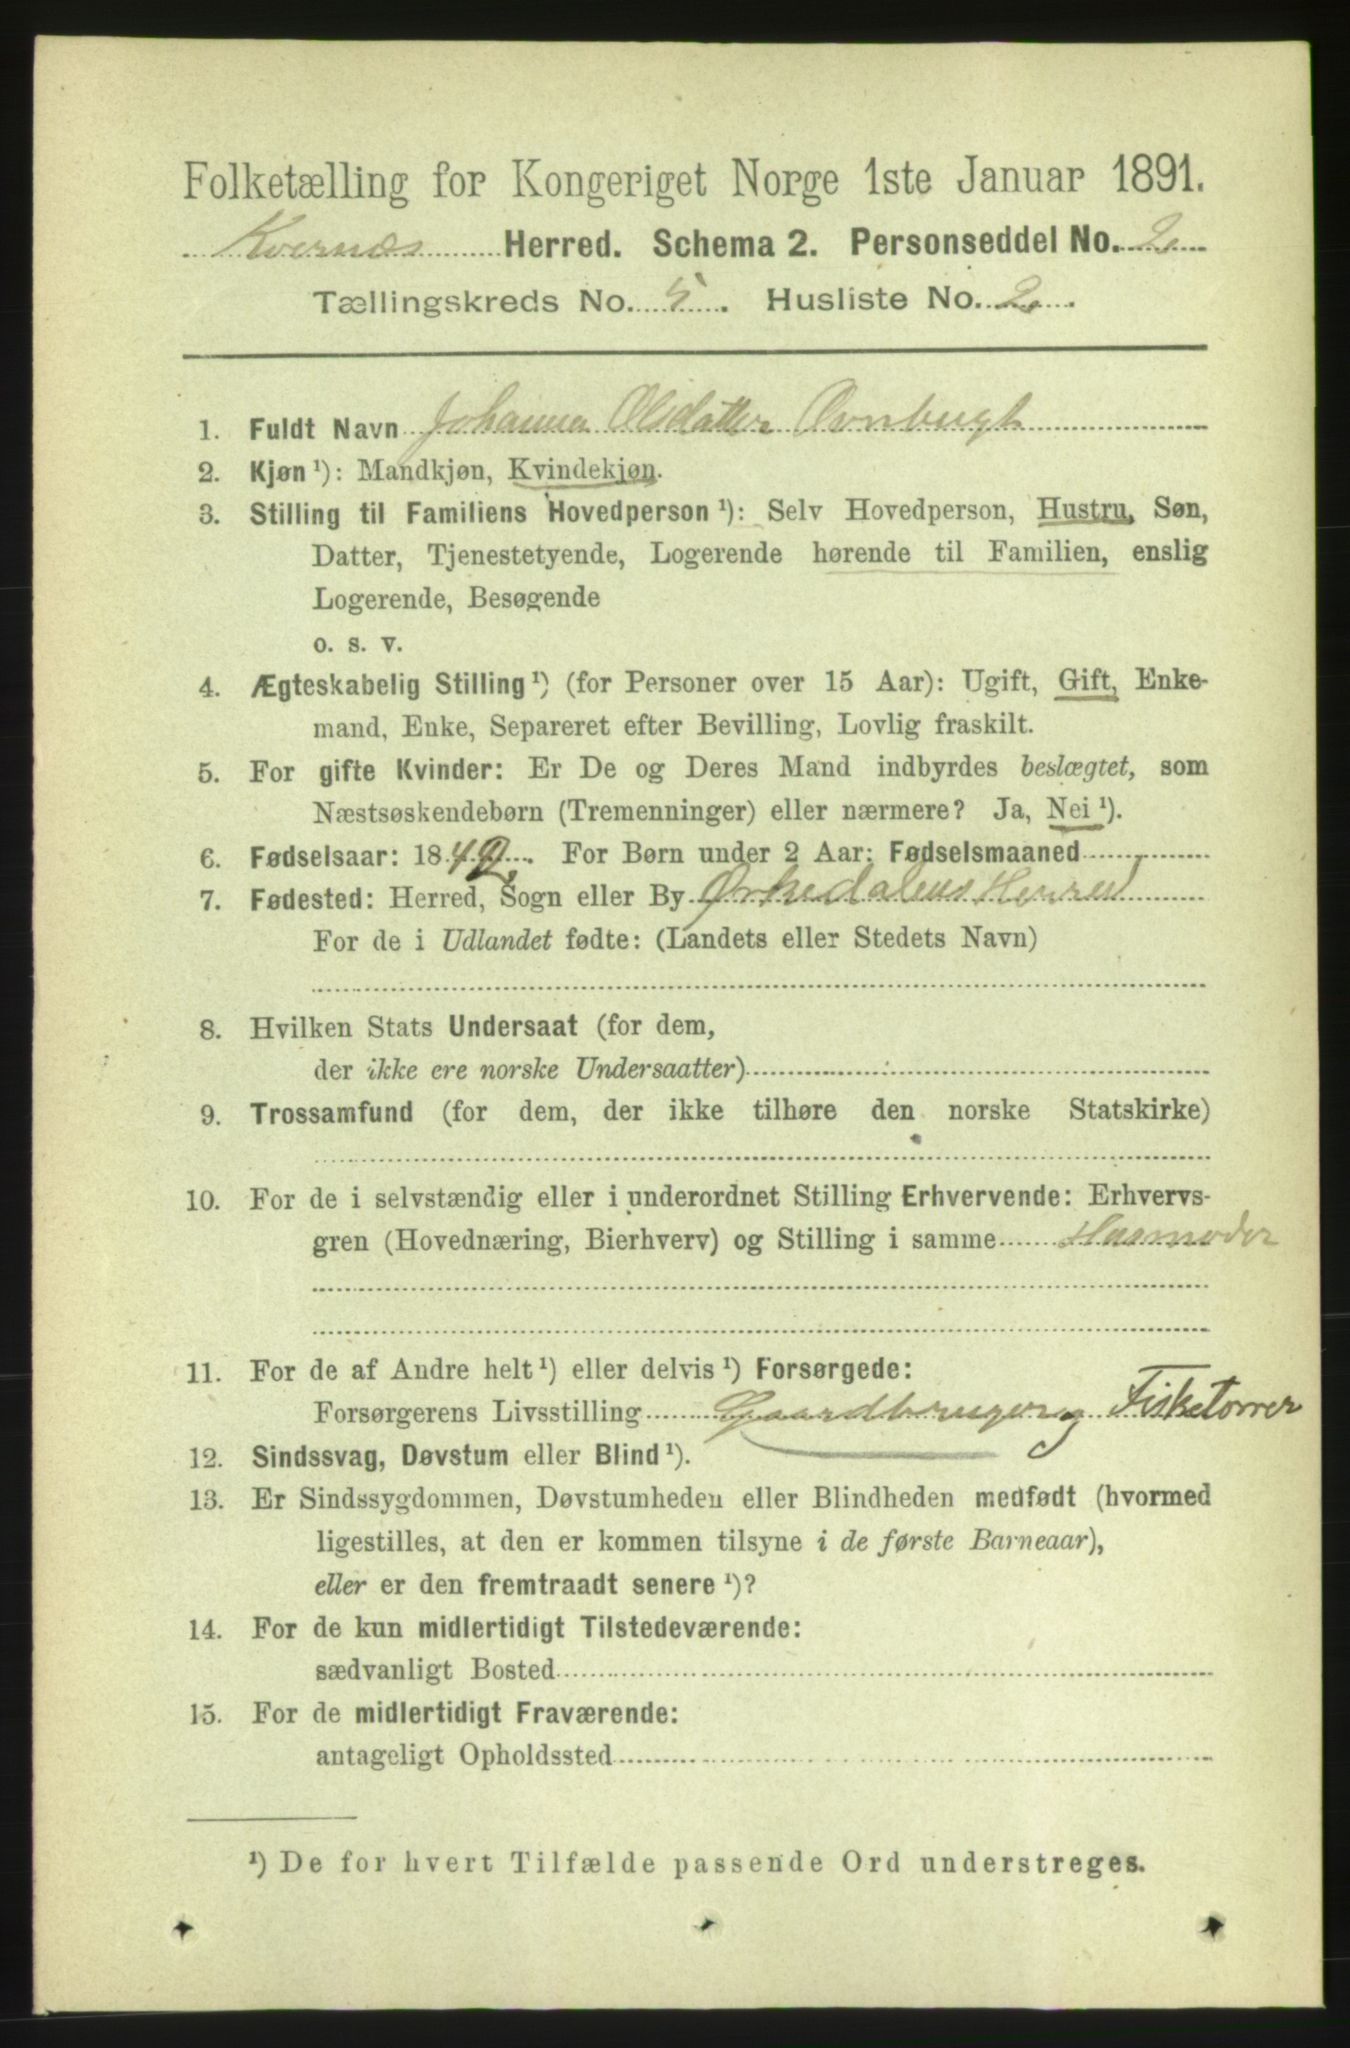 Folketælling for Kongeriget Norge 1ste Januar 1891.
Kvernæs Herred. Schema 2. Personseddel No. 2
Tællingskreds No. 5. Husliste No. 2.
1. Fuldt Navn Johanna Olsdatter
2. Kjøn ¹): Mandkjøn, Kvindekjøn.
3. Stilling til Familiens Hovedperson ¹): Selv Hovedperson, Hustru, Søn,
Datter, Tjenestetyende, Logerende hørende til Familien, enslig
Logerende, Besøgende
o. s. v.
4. Ægteskabelig Stilling ¹) (for Personer over 15 Aar): Ugift, Gift, Enke-
mand, Enke, Separeret efter Bevilling, Lovlig fraskilt.
5. For gifte Kvinder: Er De og Deres Mand indbyrdes beslægtet, som
Næstsøskendebørn (Tremenninger) eller nærmere? Ja, Nei ¹).
6. Fødselsaar: 1842. For Børn under 2 Aar: Fødselsmaaned
7. Fødested: Herred, Sogn eller By Ørkedalens Herred
For de i Udlandet fødte: (Landets eller Stedets Navn)
8. Hvilken Stats Undersaat (for dem,
der ikke ere norske Undersaatter)
9. Trossamfund (for dem, der ikke tilhøre den norske Statskirke)
10. For de i selvstændig eller i underordnet Stilling Erhvervende: Erhvervs-
gren (Hovednæring, Bierhverv) og Stilling i samme Husmoder
11. For de af Andre helt ¹) eller delvis ¹) Forsørgede:
Forsørgerens Livsstilling Gaardbruger og Fisketorrer
12. Sindssvag, Døvstum eller Blind ¹).
13. Er Sindssygdommen, Døvstumheden eller Blindheden medfødt (hvormed
ligestilles, at den er kommen tilsyne i de første Barneaar),
eller er den fremtraadt senere ¹)?
14. For de kun midlertidigt Tilstedeværende:
sædvanligt Bosted
15. For de midlertidigt Fraværende:
antageligt Opholdssted
¹) De for hvert Tilfælde passende Ord understreges.